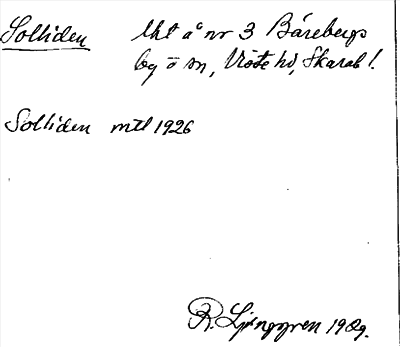 Solliden lht å nr 3 Bärebergs
by o sn, Viste hd, Skarab l.
Solliden mtl 1926
R. Ljunggren 1989.